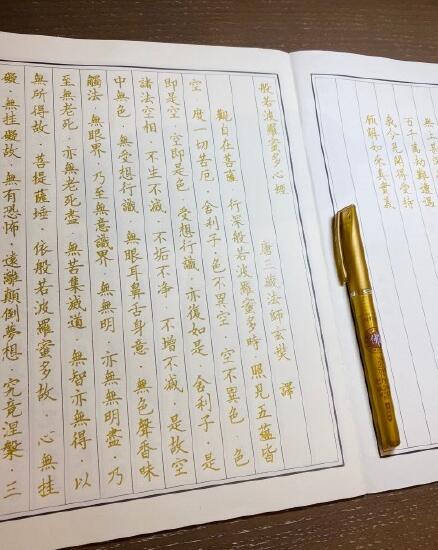 無上甚
百千萬劫難遭遇
我今見聞得受持
願解如來真實義
般若波羅蜜多心經
唐三藏法師玄奘 譯
觀自在菩薩·行深般若波羅蜜多時·照見五蘊皆
空·度一切苦厄·舍利子·色不異空·空不異色·色
即是空·空即是色·受想行識·亦復如是·舍利子·是
諸法空相·不生不滅·不垢不淨·不增不減·是故空
中無色·無受想行識·無眼耳鼻舌身意·無色聲香味
觸法·無眼界·乃至無意識界·無無明·亦無無明盡·乃
至無老死·亦無老死盡·無苦集滅道·無智亦無得·以
無所得故·菩提薩埵·依般若波羅蜜多故·心無挂
礙·無挂礙故·無有恐怖·遠離顛倒夢想·究竟涅槃·三